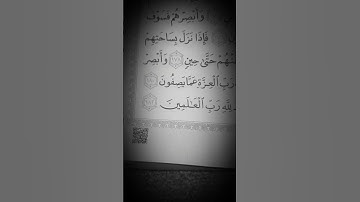 وَأَبْصِرْهُمْ فَسَوْفَ
فَإِذَا نَزَلَ بِسَاحَتِهِمْ
عَنْهُمْ حَتَّىٰ حِينٍ وَأَبْصِرْ
رَبِّ ٱلْعِزَّةِ عَمَّا يَصِفُونَ
لِلَّهِ رَبِّ ٱلْعَٰلَمِينَ